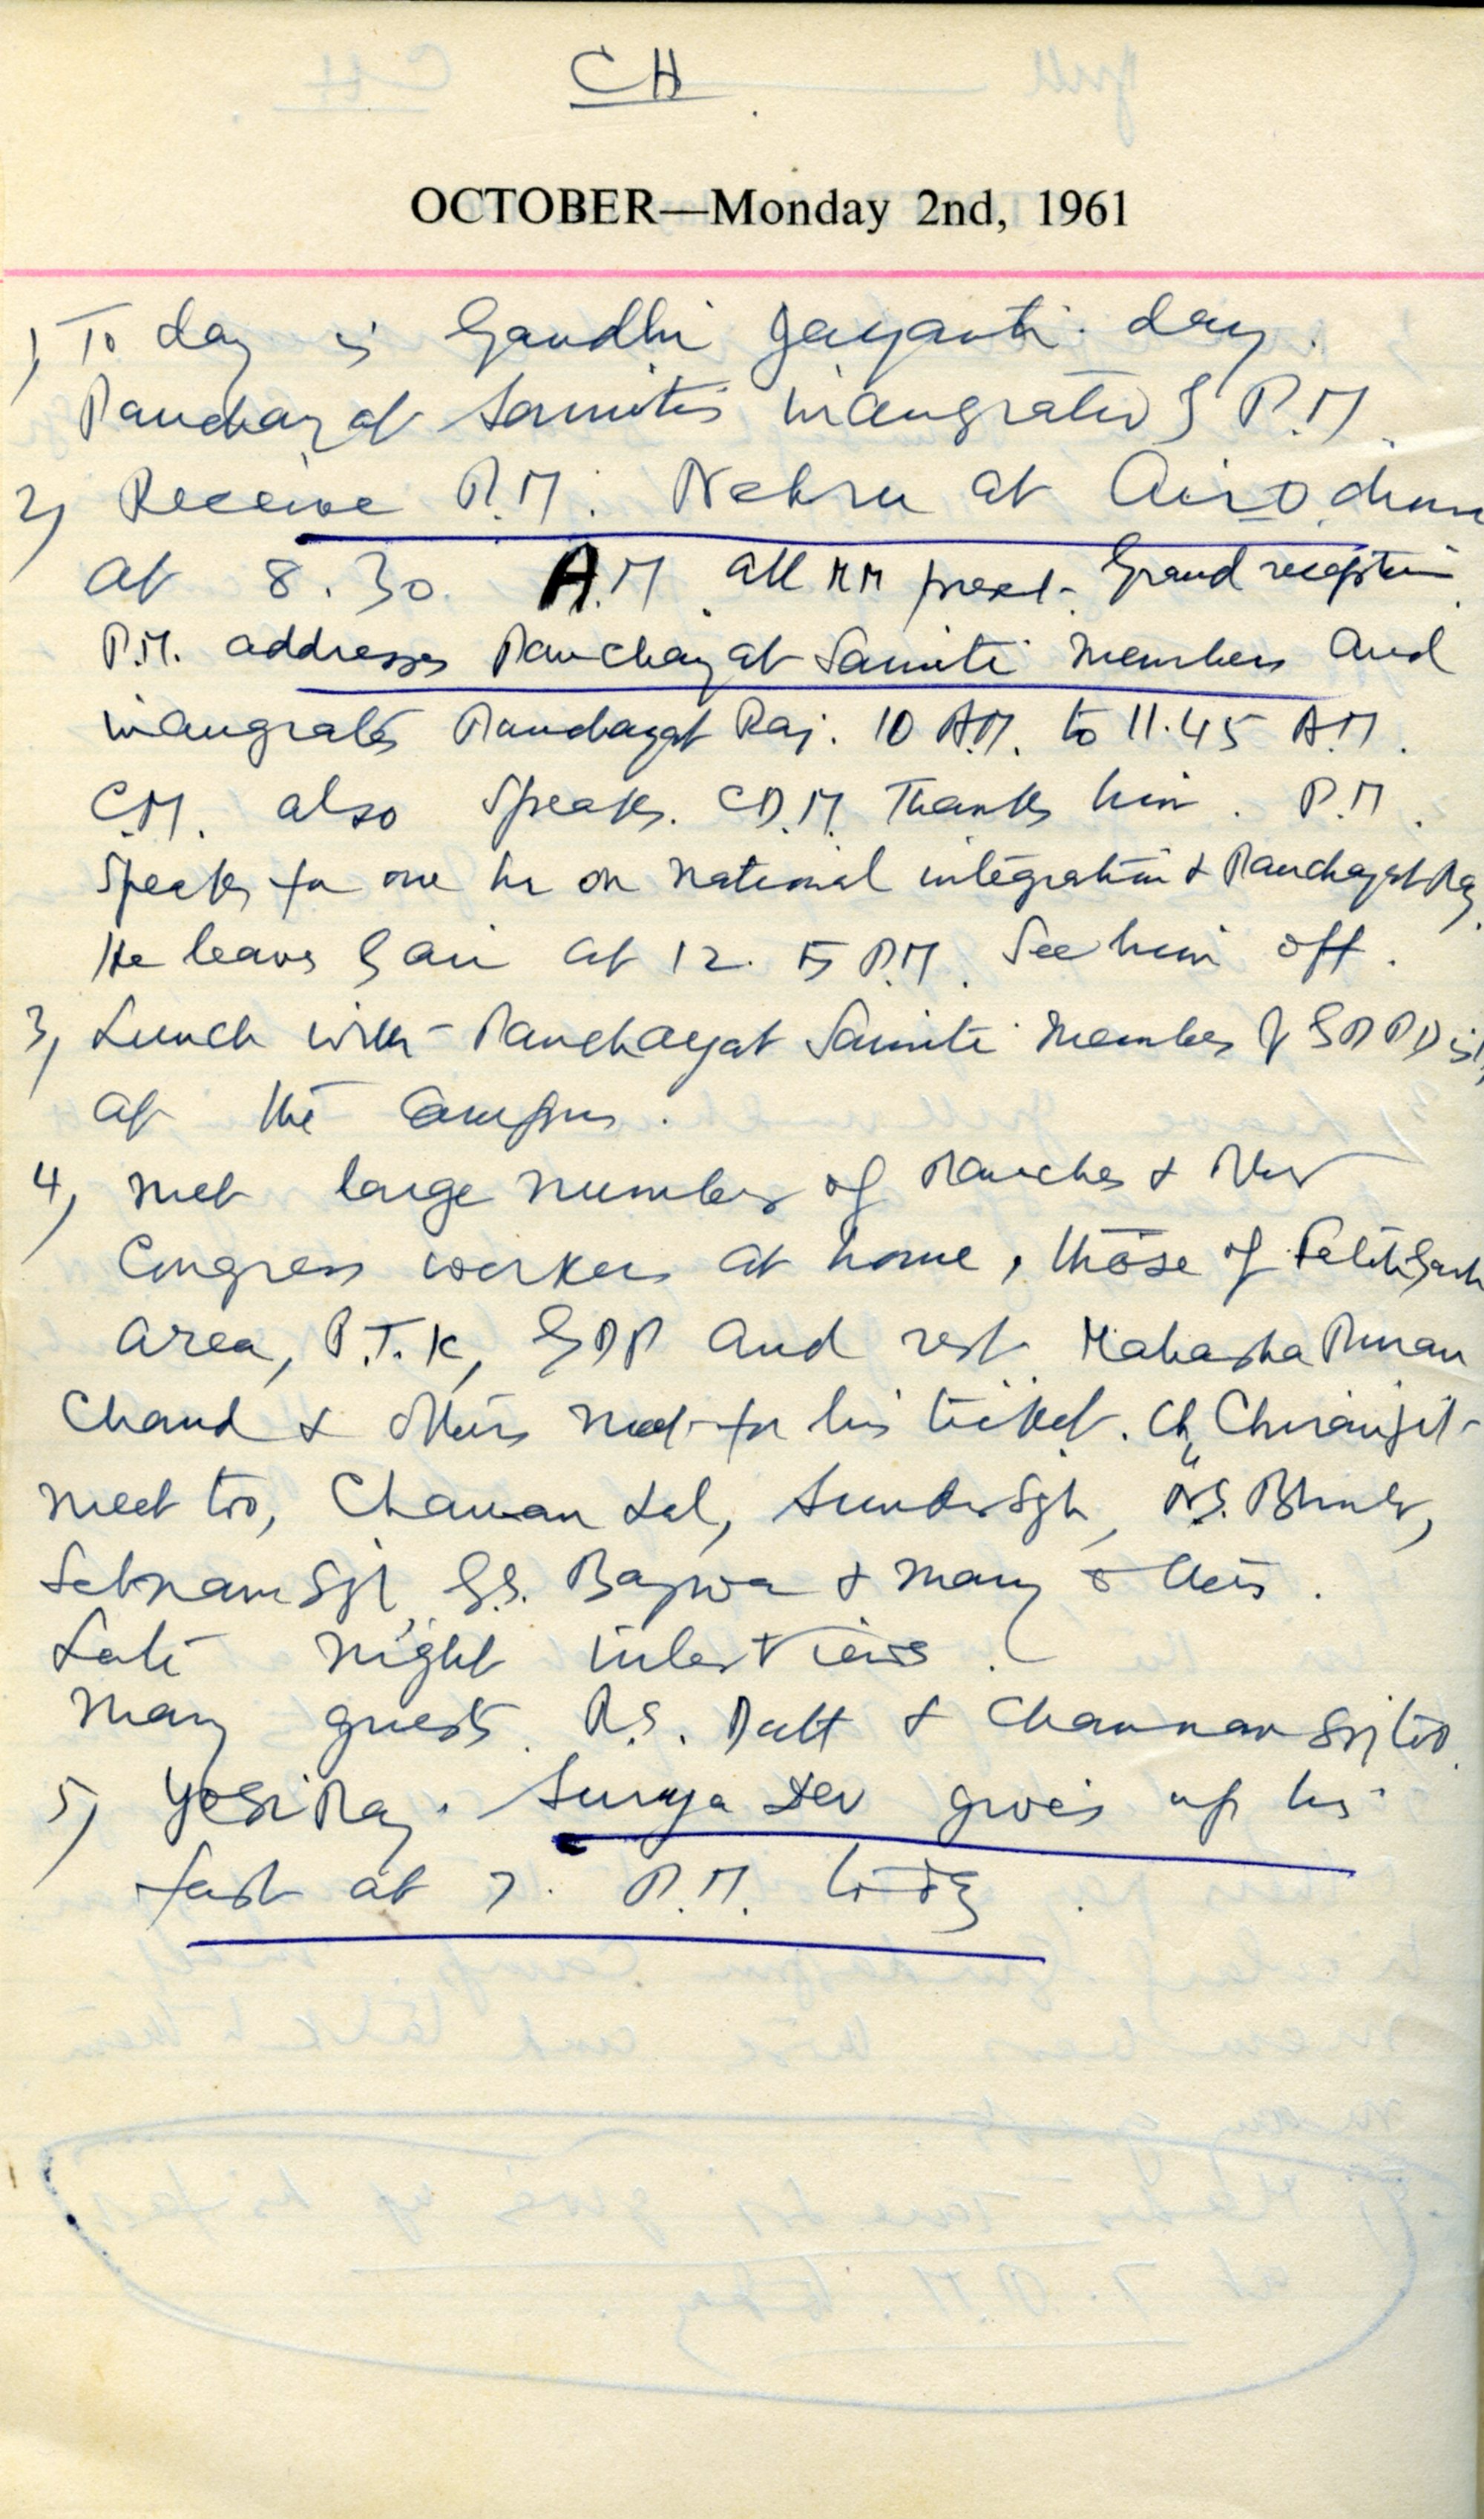 CH
OCTOBER—Monday 2nd, 1961
1) To day is Gandhi Jayanti day.
Panchayat Samitis inaugrated by P.M.
2) Receive P.M. Nehru at Airodrum
at 8.30 A.M. all MM present. Grand reception.
P.M. addresses Panchayat Samiti members and
inaugrates Panchayat Raj. 10 A.M. to 11.45 A.M.
C.M. also speaks. C.D.M. Thanks him. P.M.
speaks for one hr on national integration & Panchayat Raj.
He leaves by air at 12.15 P.M. See him off.
3) Lunch with Panchayat Samiti members of GDP Dist
at the Campus.
4) met large number of Panches & other
Congress workers at home, those of Fatehgarh
area, P.T.K, GDP and rest Mahasha Puran
Chand & others meet for his ticket. Ch. Chiranjit
meet too, Chaman Lal, Sunder Sgh,
Satnam Sgh, G.S. Bajwa & many others.
Late night interviews.
many guests. R.S. Dutt & Channan Sgh too.
5) Yogi Raj Surya Dev gives up his
fast at 7. P.M. today.